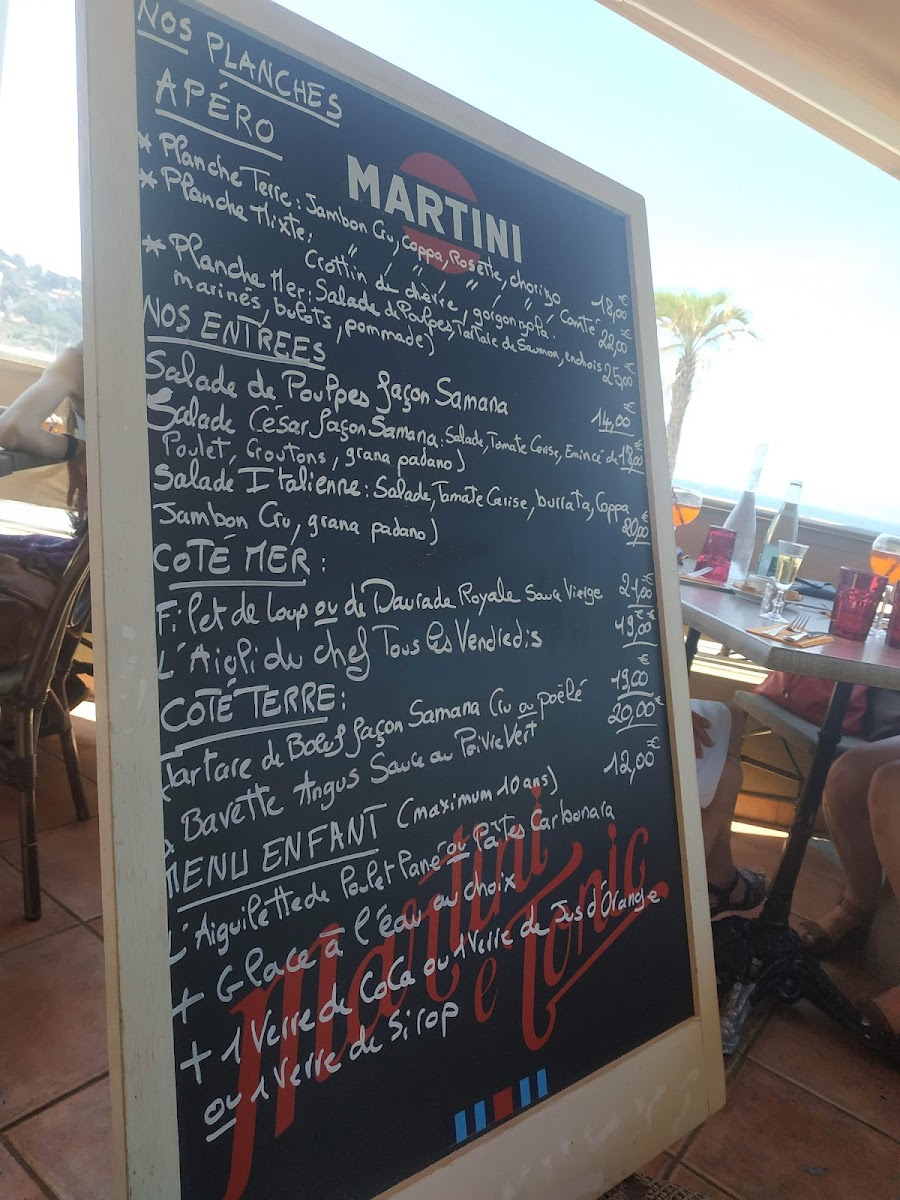 NOS PLANCHES
APÉRO
MARTINI
* Planche Terre : Jambon Cru, Coppa, Rosette, chorizo 18,00€
* Planche Mixte : " " " " "
Crottin de chèvre, gorgonzola, Comté 22,00€
* Planche Mer : Salade de Poulpes, Tartare de Saumon, anchois 25,00€
marinés, bulots, pommade)
NOS ENTREES
Salade de Poulpes façon Samana 14,00€
Salade César façon Samana : Salade, Tomate Cerise, Emincé de 18,00€
Poulet, Croutons, grana padano)
Salade Italienne : Salade, Tomate Cerise, burrata, Coppa
Jambon Cru, grana padano) 20,00€
COTÉ MER :
Filet de loup ou de Daurade Royale Sauce Vierge 21,00€
L'Aïoli du chef Tous les Vendredis 19,00€
COTÉ TERRE :
Tartare de Boeuf façon Samana Cru ou poëlé 19,00€
Bavette Angus Sauce au Poivre Vert 20,00€
MENU ENFANT (maximum 10 ans) 12,00€
L'Aiguilette de Poulet Pané ou Pâtes Carbonara
+ Glace à l'eau au choix
+ 1 Verre de Coca ou 1 Verre de Jus d'Orange
ou 1 Verre de Sirop
Martini
e Tonic